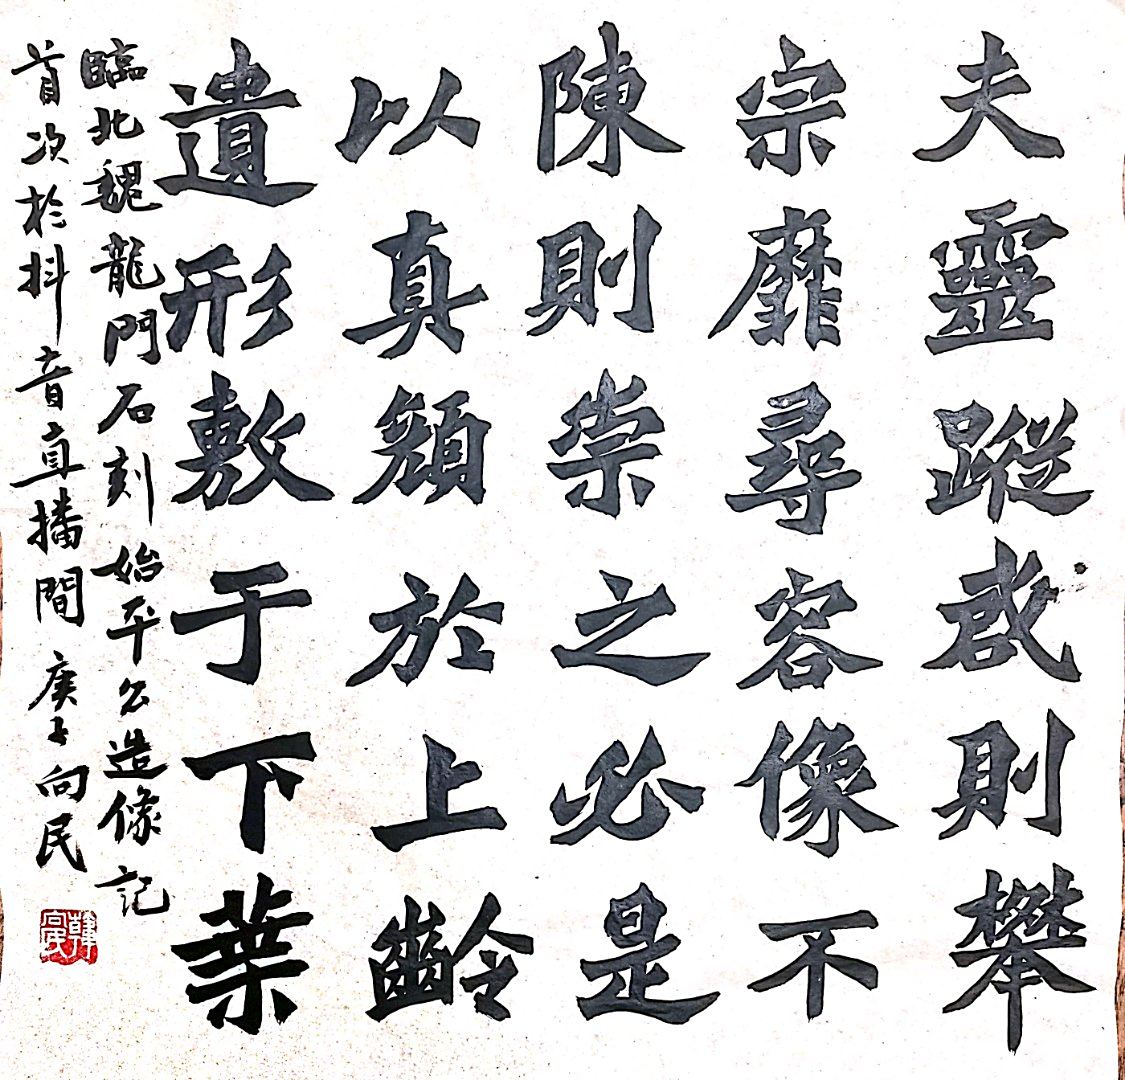 夫靈蹤啟則攀
宗靡尋容像不
陳則崇之必是
以真顏於上齡
遺形敷于下葉
臨北魏龍門石刻始平公造像記
首次於抖音直播間庚子向民